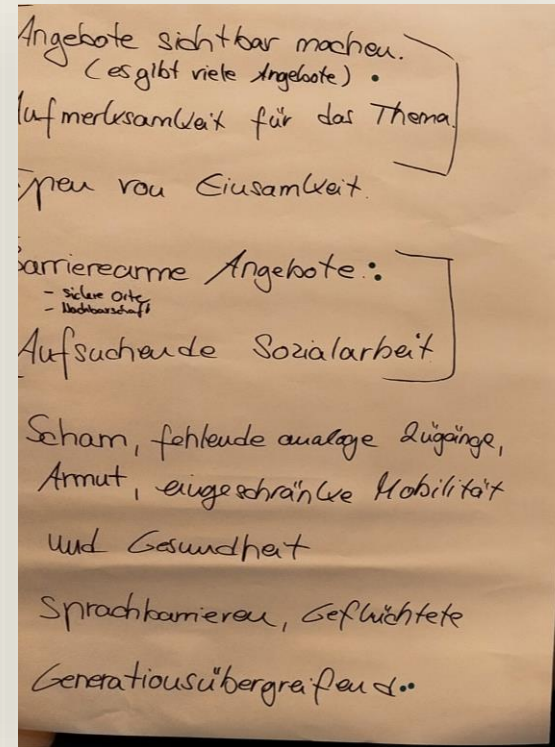 Angebote sichtbar machen.
(es gibt viele Angebote)
Aufmerksamkeit für das Thema.
Typen von Einsamkeit.
Barrierearme Angebote:
- sichere Orte
- Nachbarschaft
Aufsuchende Sozialarbeit
Scham, fehlende analoge Zugänge,
Armut, eingeschränkte Mobilität
und Gesundheit
Sprachbarrieren, Geflüchtete
Generationsübergreifend